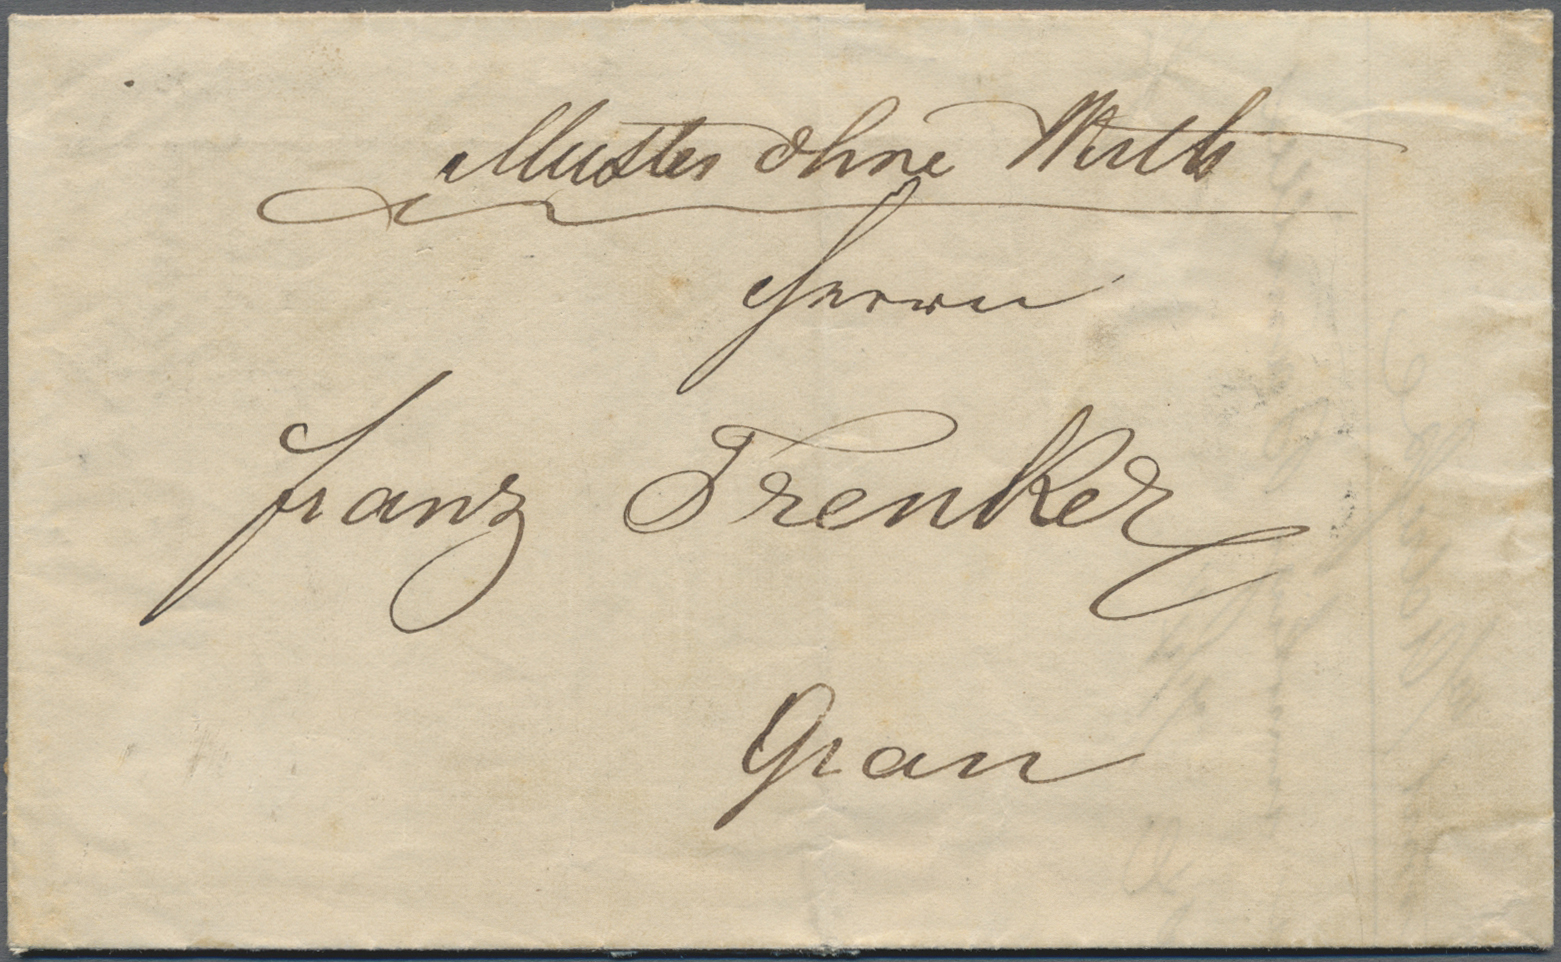 Muster ohne Werth
Herrn
Franz Trenker
Gran